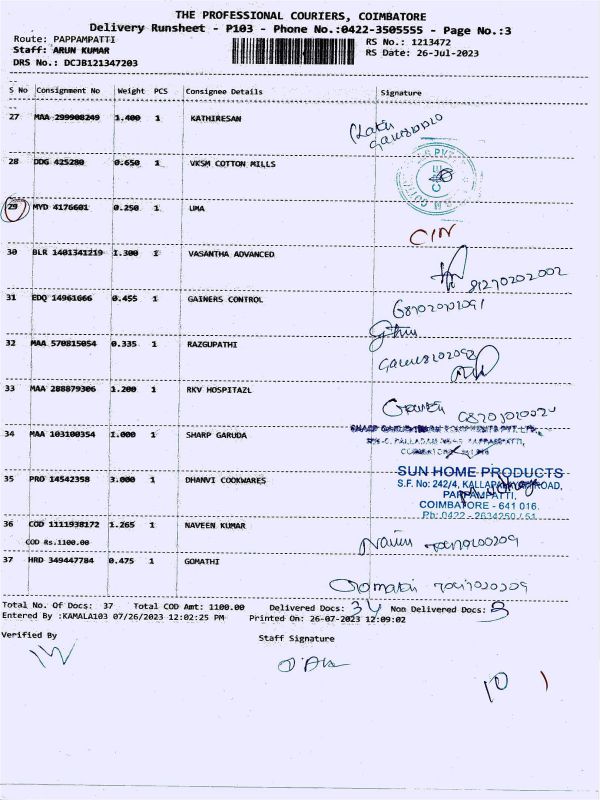 THE PROFESSIONAL COURIERS, COIMBATORE
Delivery Runsheet - P103 - Phone No.:0422-3505555 - Page No.:3
Route: PAPPAMPATTI RS No.: 1213472
Staff: ARUN KUMAR RS Date: 26-Jul-2023
DRS No.: DCJB121347203
S No Consignment No Weight PCS Consignee Details Signature
27 MAA 299908249 1.400 1 KATHIRESAN
28 DDG 425280 0.650 1 VKSM COTTON MILLS
29 MYD 4176601 0.250 1 UMA
CIN
30 BLR 1401341219 1.300 1 VASANTHA ADVANCED
31 EDQ 14961666 0.455 1 GAINERS CONTROL
32 MAA 570815054 0.335 1 RAZGUPATHI
33 MAA 288879306 1.200 1 RKV HOSPITAZL
34 MAA 103100354 1.000 1 SHARP GARUDA
35 PRO 14542358 3.000 1 DHANVI COOKWARES
SUN HOME PRODUCTS
S.F. No: 242/4, ROAD,
PAPPAMPATTI,
COIMBATORE - 641 016.
Ph: 0422 - 2634250 / 51
36 COD 1111938172 1.265 1 NAVEEN KUMAR
COD Rs.1100.00
37 HRD 349447784 0.475 1 GOMATHI
Gomathi
Total No. Of Docs: 37 Total COD Amt: 1100.00 Delivered Docs: 34 Non Delivered Docs: 3
Entered By :KAMALA103 07/26/2023 12:02:25 PM Printed On: 26-07-2023 12:09:02
Verified By Staff Signature
10 1